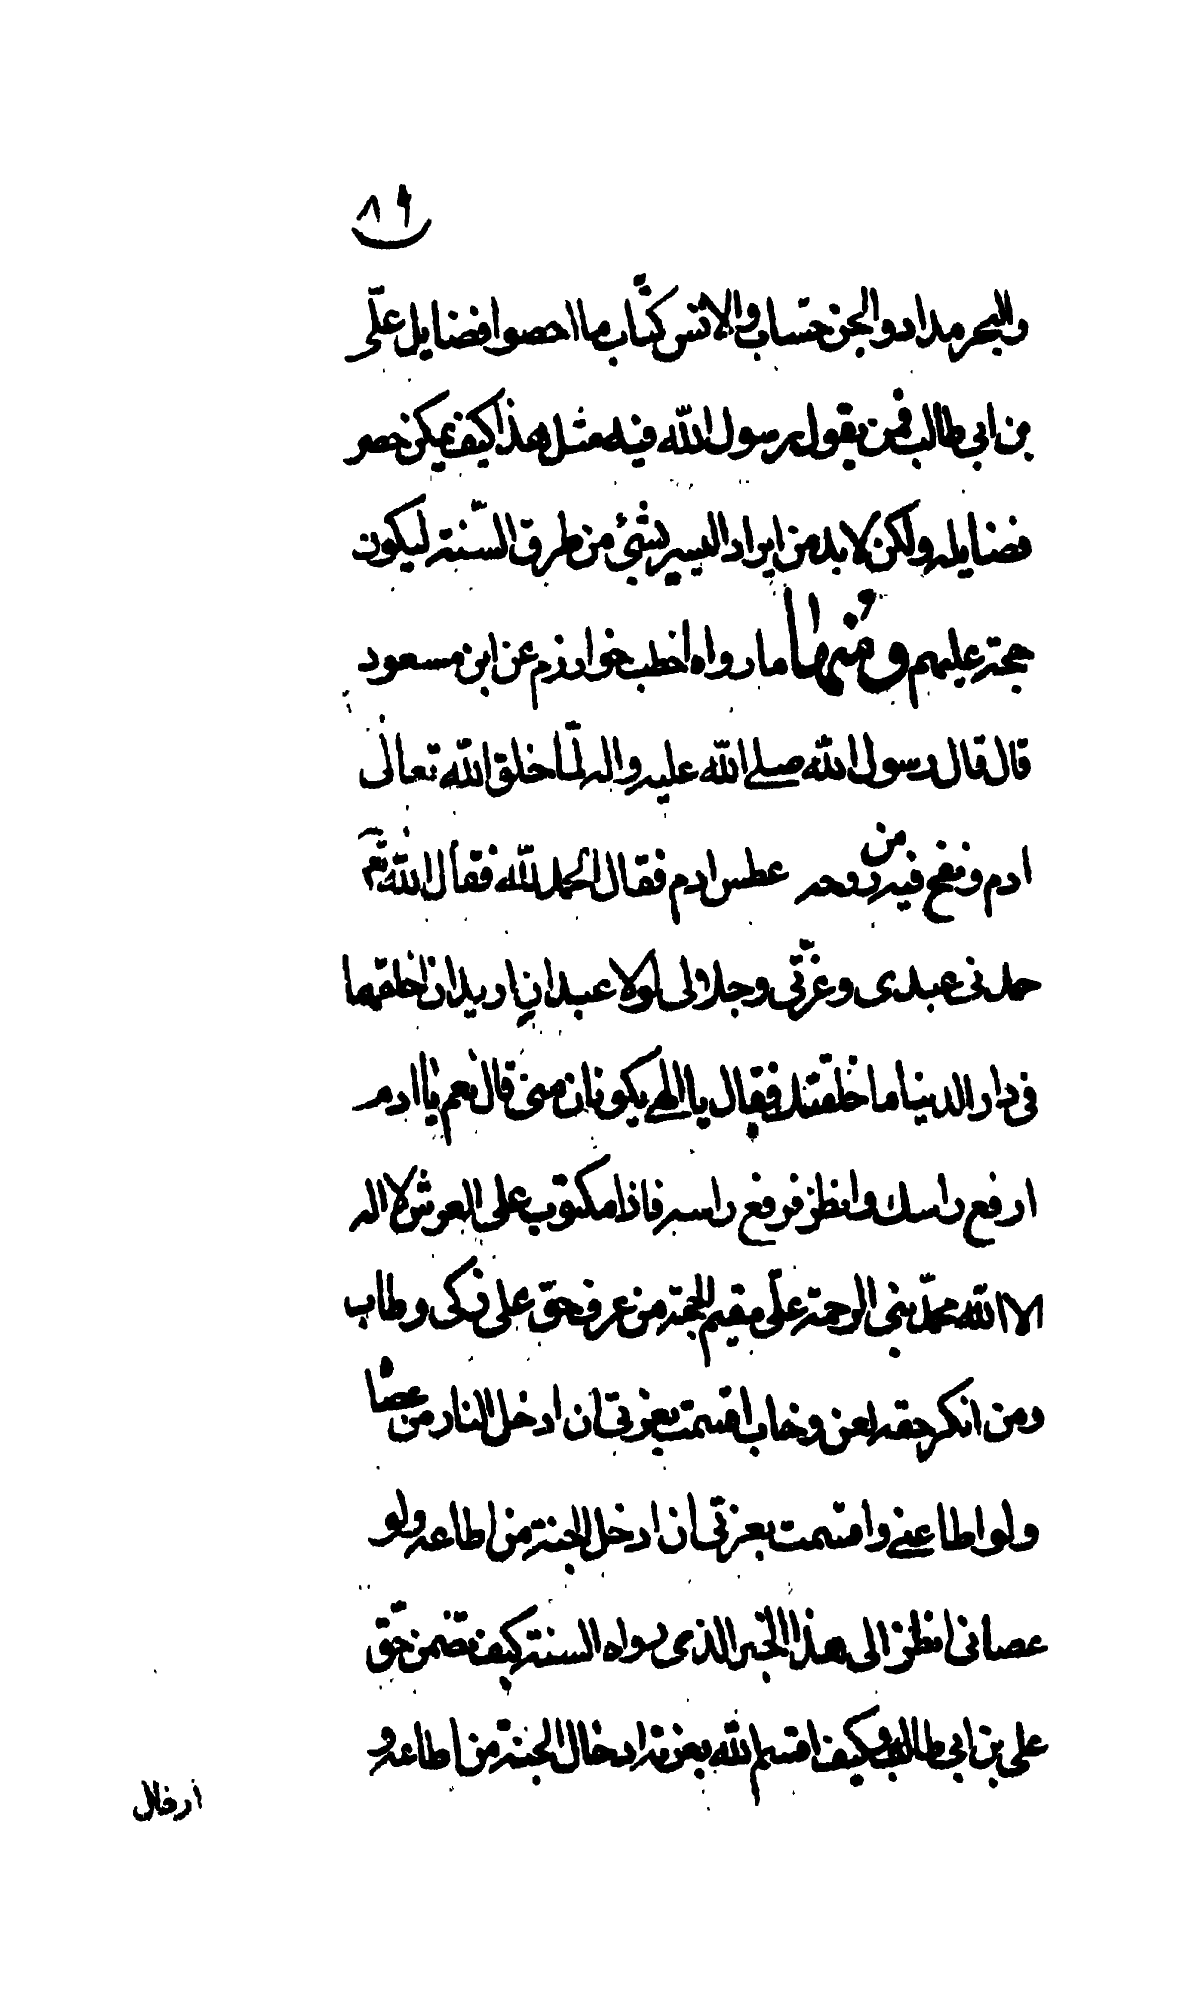 ٨٩
والبحر مداد والجن حسّاب والانس كتّاب ما احصوا فضايل علّى
بن ابى طالب فمن يقول رسول الله فيه مثل هذا كيف يمكن حصر
فضايله ولكن لابد من ايراد اليسير بشئ من طرق السّنة ليكون
حجة عليهم ومنها ما رواه اخطب خوارزم عن ابن مسعود
قال قال رسول الله صلى الله عليه واله لمّا خلق الله تعالى
ادم ونفخ فيه من روحه عطس ادم فقال الحمد لله فقال الله تعم
حمدنى عبدى وعزّتى وجلالى لولا عبدان اريد ان اخلقهما
فى دار الدنيا ما خلقتك فقال يا الهى يكونان منى قال نعم يا ادم
ارفع راسك وانظر فرفع راسه فاذا مكتوب على العرش لا اله
الا الله محمّد نبى الرحمة علّى مقيم الحجة من عرف حق على زكى وطاب
ومن انكر حقه لعن وخاب اقسمت بعزتى ان ادخل النار من عصاا
ولو اطاعنى واقسمت بعزتى ان ادخل الجنة من اطاعه ولو
عصانى انظر الى هذا الخبر الذى رواه السنة كيف تضمن حقّ
على بن ابى طالب وكيف اقسم الله بعزته ادخال الجنة من اطاعه و
ادخال